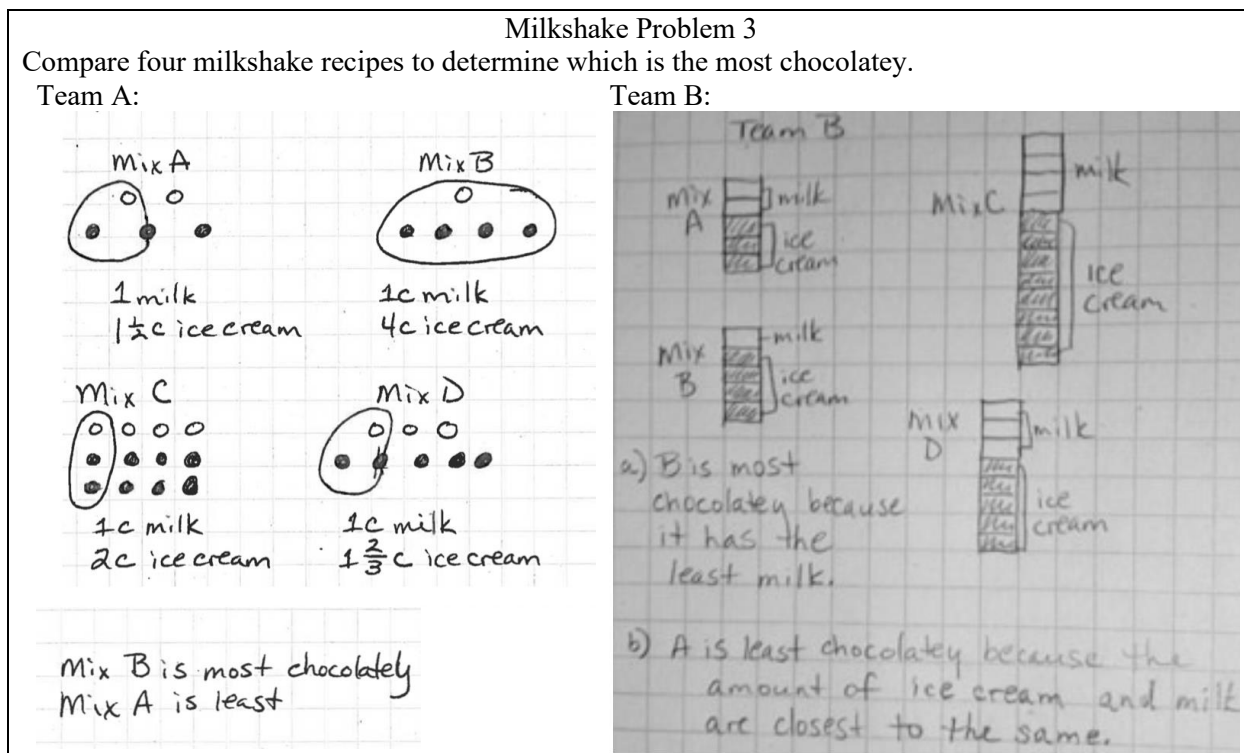 Milkshake Problem 3
Compare four milkshake recipes to determine which is the most chocolatey.
Team A:
Mix A
1 milk
1 1/2 c ice cream
Mix B
1c milk
4c ice cream
Mix C
1c milk
2c ice cream
Mix D
1c milk
1 2/3 c ice cream
Mix B is most chocolately
Mix A is least
Team B:
Team B
Mix
A
milk
ice
cream
Mix C
milk
ice
cream
Mix
B
milk
ice
cream
Mix
D
milk
ice
cream
a) B is most
chocolatey because
it has the
least milk.
b) A is least chocolatey because the
amount of ice cream and milk
are closest to the same.